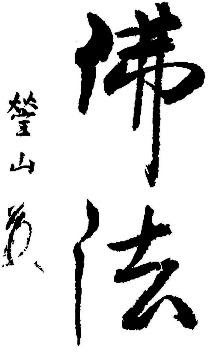 佛法
瑩山